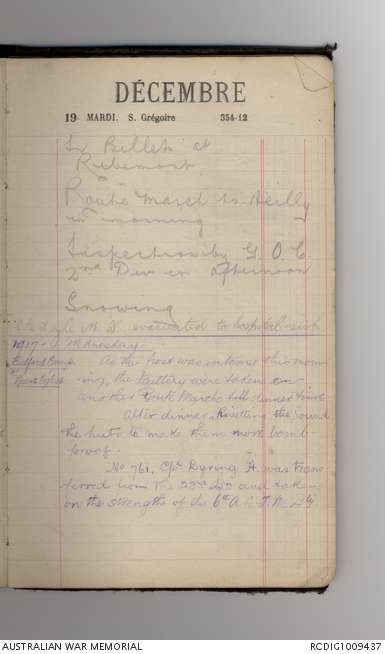 DÉCEMBRE
19 MARDI. S. Grégoire 354-12
In Billets at
Ribemont.
Route March to Heilly
in morning
Inspection by G.O.C
2nd Div in afternoon
Snowing
evacuated to hospital sick
1917 - Wednesday.
As the frost was intense this morn
-ing, the Battery were taken on
another Route March till dinner time
After dinner, Rivetting the round
the huts to make them more bomb-
proof.
No 761. Cpl. Dyring A. was trans
ferred from the 23rd Bn and taken
on the strengths of the 6th A.L.T.M. By
AUSTRALIAN WAR MEMORIAL
RCDIG1009437